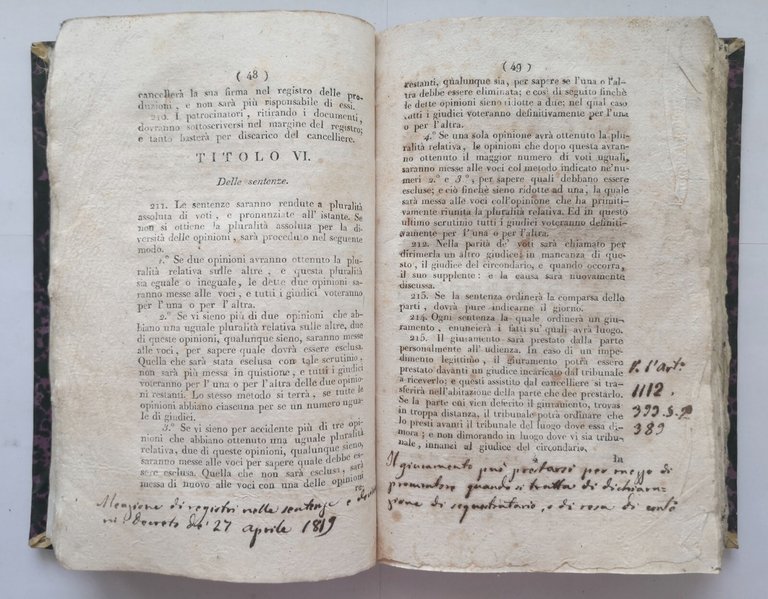 ( 48 )
cancellerà la sua firma nel registro delle pro-
duzioni, e non sarà più responsabile di essi.
210. I patrocinatori, ritirando i documenti,
dovranno sottoscriversi nel margine del registro;
e tanto basterà per discarico del cancelliere.
TITOLO VI.
Delle sentenze.
211. Le sentenze saranno rendute a pluralità
assoluta di voti, e pronunziate all' istante. Se
non si ottiene la pluralità assoluta per la di-
versità delle opinioni, sarà proceduto nel seguente
modo.
1.° Se due opinioni avranno ottenuto la plu-
ralità relativa sulle altre, e questa pluralità
sia eguale o ineguale, le dette due opinioni sa-
ranno messe alle voci, e tutti i giudici voteranno
per l'una o per l'altra.
2.° Se vi sieno più di due opinioni che ab-
biano una uguale pluralità relativa sulle altre, due
di queste opinioni, qualunque sieno, saranno messe
alle voci, per sapere quale dovrà essere esclusa.
Quella che sarà stata esclusa con tale scrutinio,
non sarà più messa in quistione, e tutti i giudici
voteranno per l' una o per l'altra delle due opinio-
ni restanti. Lo stesso metodo si terrà, se tutte le
opinioni abbiano ciascuna per se un numero ugua-
le di giudici.
3.° Se vi sieno per accidente più di tre opi-
nioni che abbiano ottenuto una uguale pluralità
relativa, due di queste opinioni, qualunque sieno,
saranno messe alle voci per sapere quale debba es-
sere esclusa. Quella che non sarà esclusa, sarà
messa di nuovo alle voci con una delle opinioni
re-
Menzione di registri nelle sentenze e
decreto de' 27 Aprile 1819
( 49 )
restanti, qualunque sia, per sapere se l'una o l'al-
tra debbe essere eliminata; e così di seguito finchè
le dette opinioni sieno ridotte a due; nel qual caso
tutti i giudici voteranno definitivamente per l'una
o per l'altra.
4.° Se una sola opinione avrà ottenuto la plu-
ralità relativa, le opinioni che dopo questa avran-
no ottenuto il maggior numero di voti uguali,
saranno messe alle voci col metodo indicato ne'nu-
meri 2.° e 3.°, per sapere quali debbano essere
escluse; e ciò finchè sieno ridotte ad una, la quale
sarà messa alle voci coll'opinione che ha primiti-
vamente riunita la pluralità relativa. Ed in questo
ultimo scrutinio tutti i giudici voteranno definiti-
vamente per l'una o per l'altra.
212. Nella parità de' voti sarà chiamato per
dirimerla un altro giudice; in mancanza di que-
sto, il giudice del circondario, e quando occorra,
il suo supplente: e la causa sarà nuovamente
discussa.
213. Se la sentenza ordinerà la comparsa delle
parti, dovrà pure indicarne il giorno.
214. Ogni sentenza la quale ordinerà un giu-
ramento, enuncierà i fatti su' quali avrà luogo.
215. Il giuramento sarà prestato dalla parte
personalmente all'udienza. In caso di un impe-
dimento legittimo, il giuramento potrà essere
prestato davanti un giudice incaricato dal tribunale
a riceverlo; e questi assistito dal cancelliere si tra-
sferirà nell'abitazione della parte che dee prestarlo.
Se la parte cui vien deferito il giuramento, trovasi
in troppa distanza, il tribunale potrà ordinare che
lo presti avanti il tribunale del luogo dove essa di-
mora; e non dimorando in luogo dove vi sia tribu-
nale, innanzi al giudice del circondario.
In
l'Art.
1112.
383
Il giuramento può prestarsi per mezzo di
procuratore quando si tratta di dichiara-
zione di sequestratario, o di resa di conto